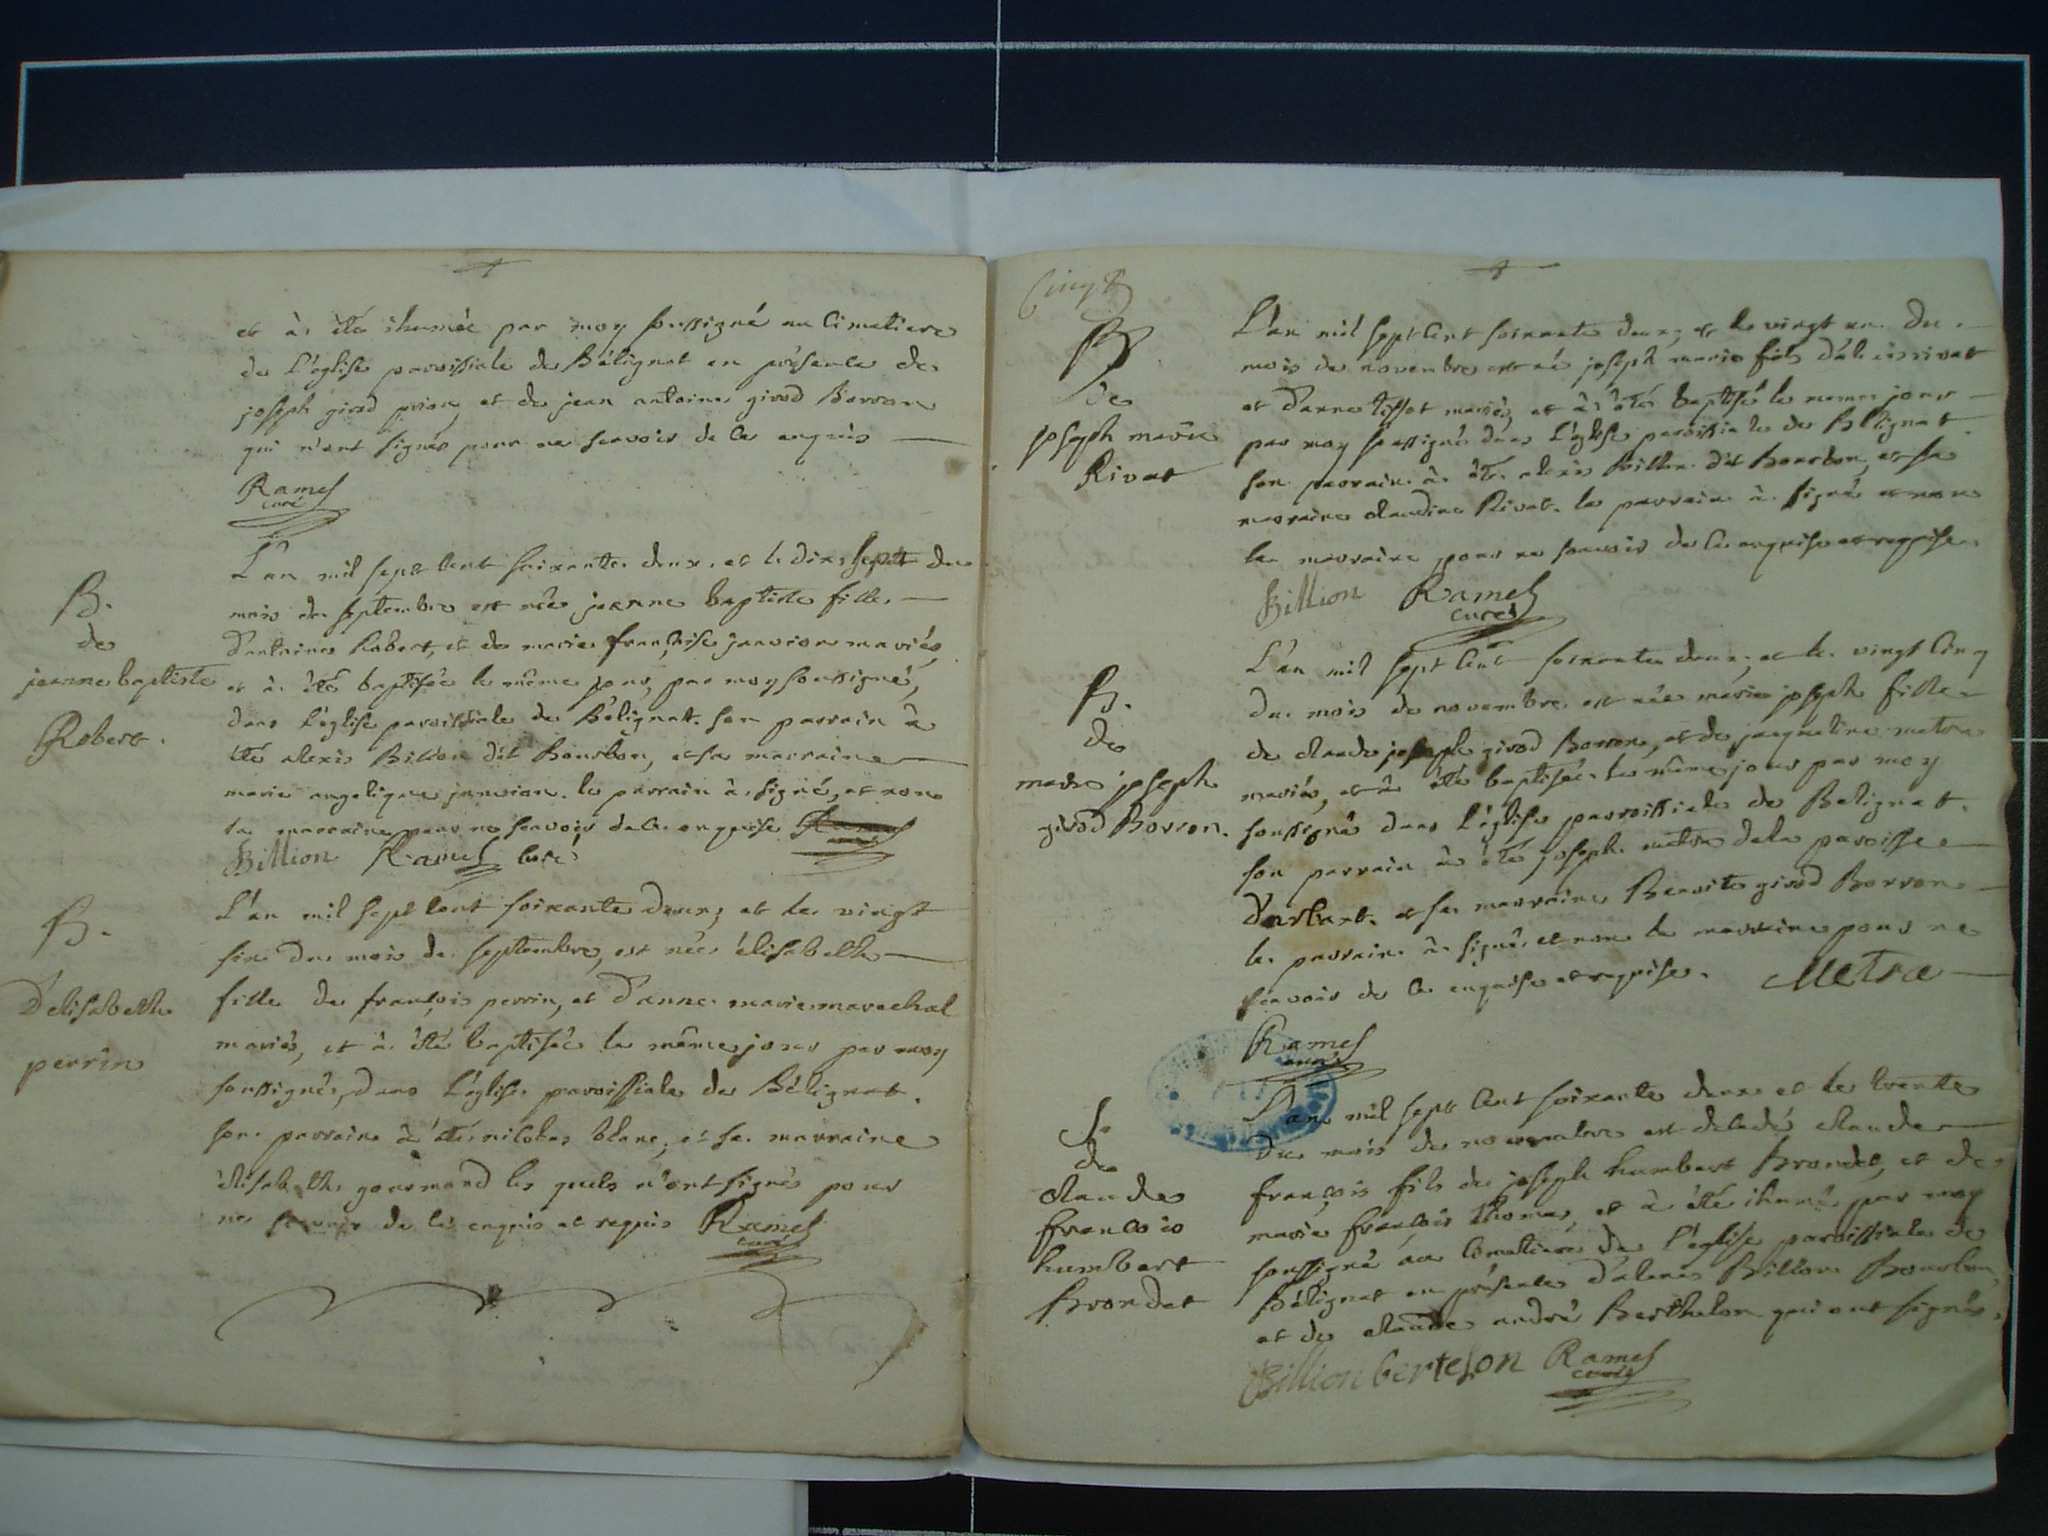 et à été ihumée par moy soussigné au cimetiere
de l'église paroissiale de Bélignat en présence de
joseph girod prian, et de jean antoine girod Borron
qui n'ont signés pour ne scavoir de ce enquis
Ramel
curé
B.
de
jeanne baptiste
Robert.
L'an mil sept cent soixante deux. et le dix sept du
mois de septembre est née jeanne baptiste fille
d'antoine Robert, et de marie françoise janvion mariés,
et à été baptisée le même jour, par moy soussigné,
dans l'église paroissiale de Bélignat. son parrain à
été alexis Billion dit Bourbon, et sa marraine
marie angelique janvion. le parrain à signé, et non
la marraine pour ne scavoir de ce enquise Ramel
Billion Ramel curé
B.
D'elisabeth
perrin
L'an mil sept cent soixante deux; et le vingt
six du mois de septembre, est née élisabeth
fille de françois perrin, et d'anne marie marechal
mariés, et à été baptisée le même jour par moy
soussignés, dans l'église paroissiale de Bélignat.
son parrain à été nicolas blanc, et sa marraine
élisabeth gourmand les quels n'ont signés pour
ne scavoir de ce enquis et requis Ramel
curé
Cinq
B
de
joseph marie
Rivat
L'an mil sept cent soixante deux; et le vingt un du
mois de novembre est né joseph marie fils d'alexis rivat
et d'anne tissot mariés, et à été baptisé le meme jour
par moy soussigné dans l'église paroissiale de Bélignat
son parrain à été alexis Billion dit Bourbon, et sa
marraine claudine Rivat. le parrain à signé et non
la marraine pour ne scavoir de ce enquise et requise
Billion Ramel
curé
B.
de
marie joseph
girod Borron.
L'an mil sept cent soixante deux; et le vingt cinq
du mois de novembre est née marie joseph fille
de claude joseph girod Borron, et de jacqueline metra
mariés, et à été baptisée le même jour par moy
soussigné dans l'église paroissiale de Belignat.
son parrain à été joseph metra de la paroisse
d'arbent. et sa marraine Benoite girod Borron
le parrain à signé et non la marraine pour ne
scavoir de ce enquise et requise. Metra
Ramel
curé
S.
de
claude
françois
humbert
Brondet
L'an mil sept cent soixante deux et le trente
du mois de novembre est décédé claude
françois fils de joseph humbert Brondet, et de
marie françois thomas, et à été ihumé par moy
soussigné au cimetiere de l'église paroissiale de
Bélignat en présence d'alexis Billion Bourbon,
et de claude andré Berthelon qui ont signés.
Billion berteson Ramel
curé